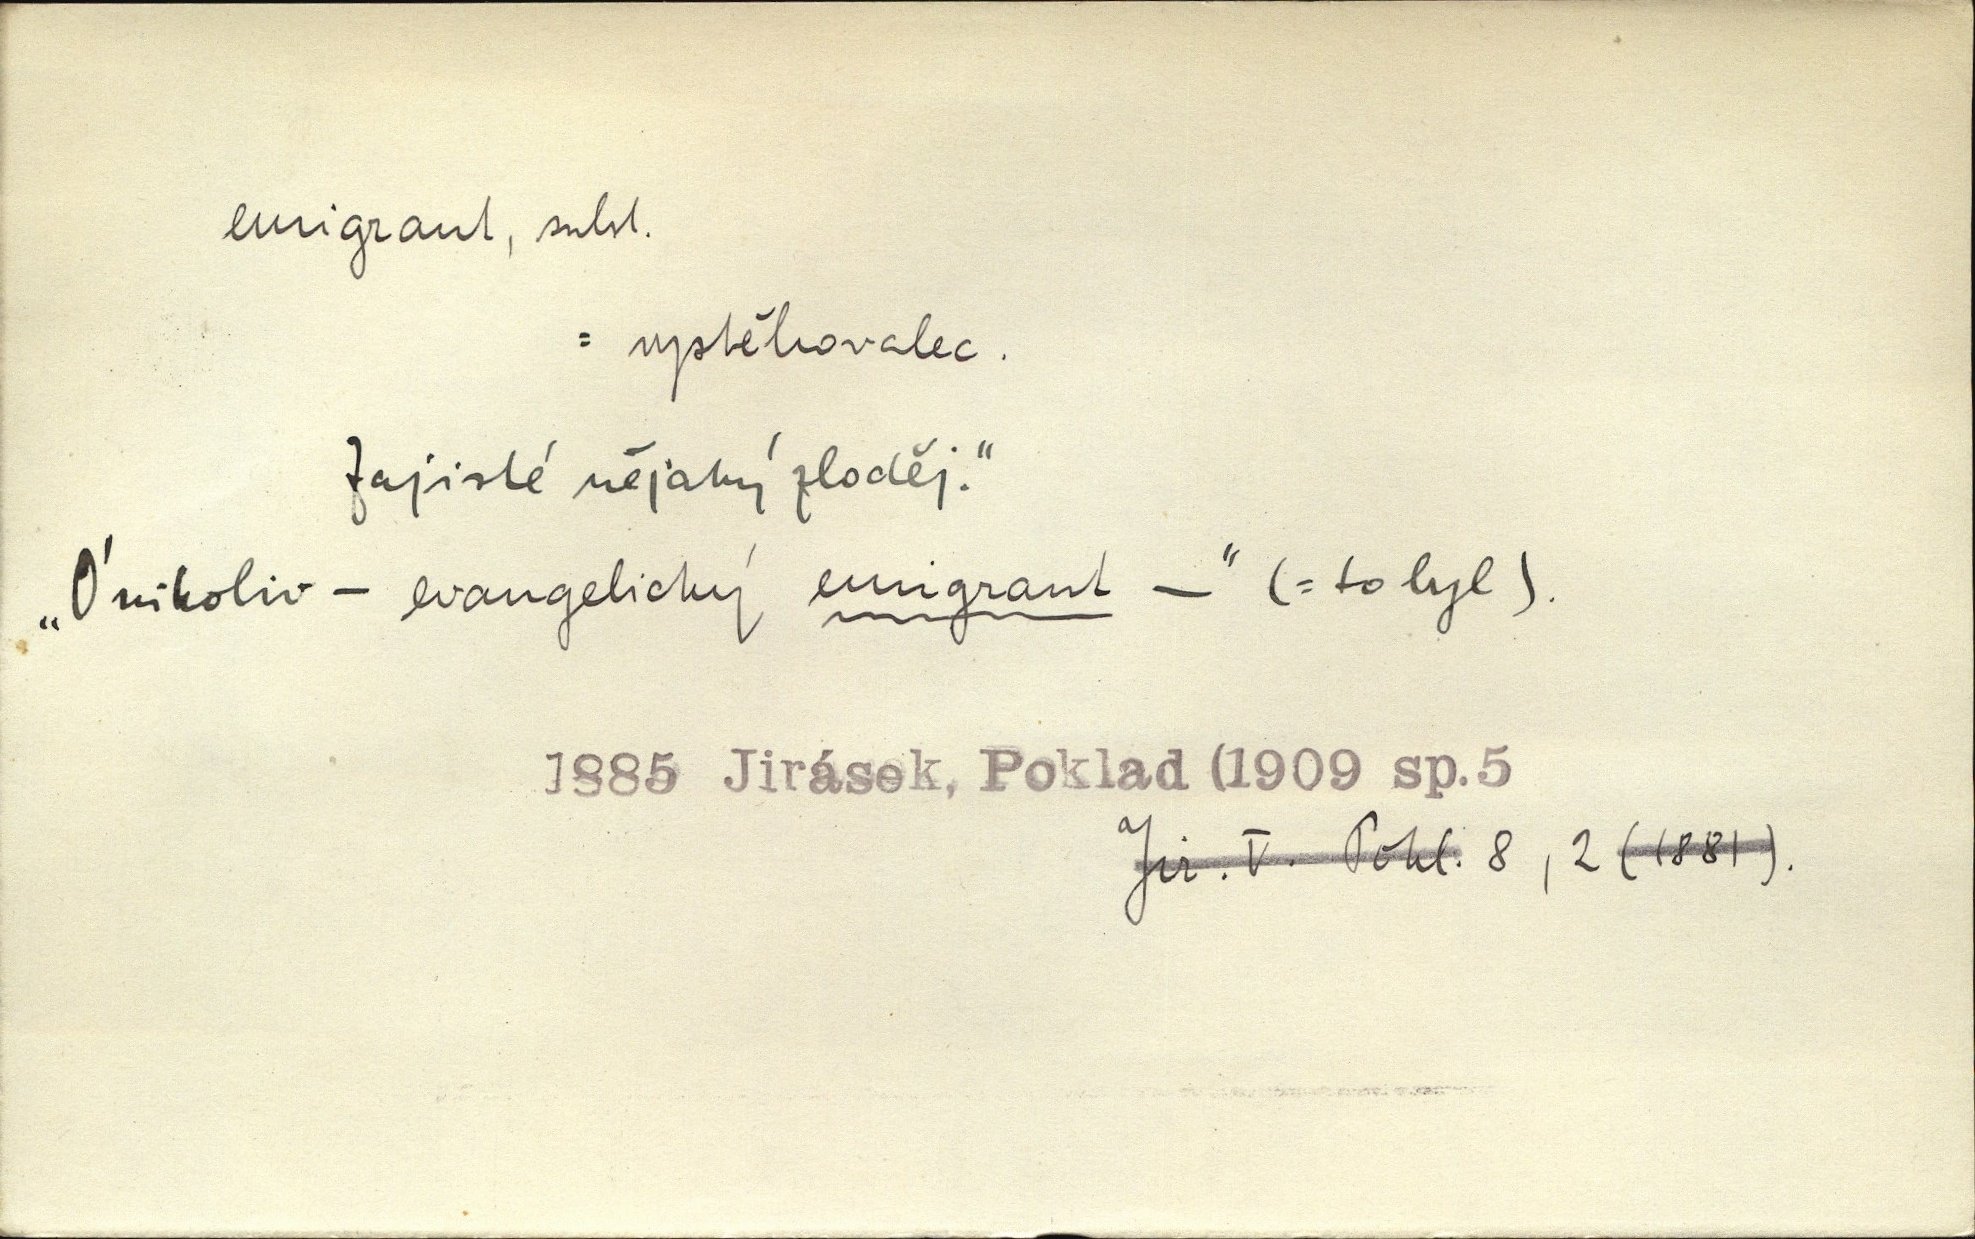 emigrant, subst.
= vystěhovalec.
Zajisté nějaký zloděj."
„Ó nikoliv – evangelický emigrant –" (= to byl).
1885 Jirásek, Poklad (1909 sp.5
Jir. V. Pokl. 8, 2 (1881).